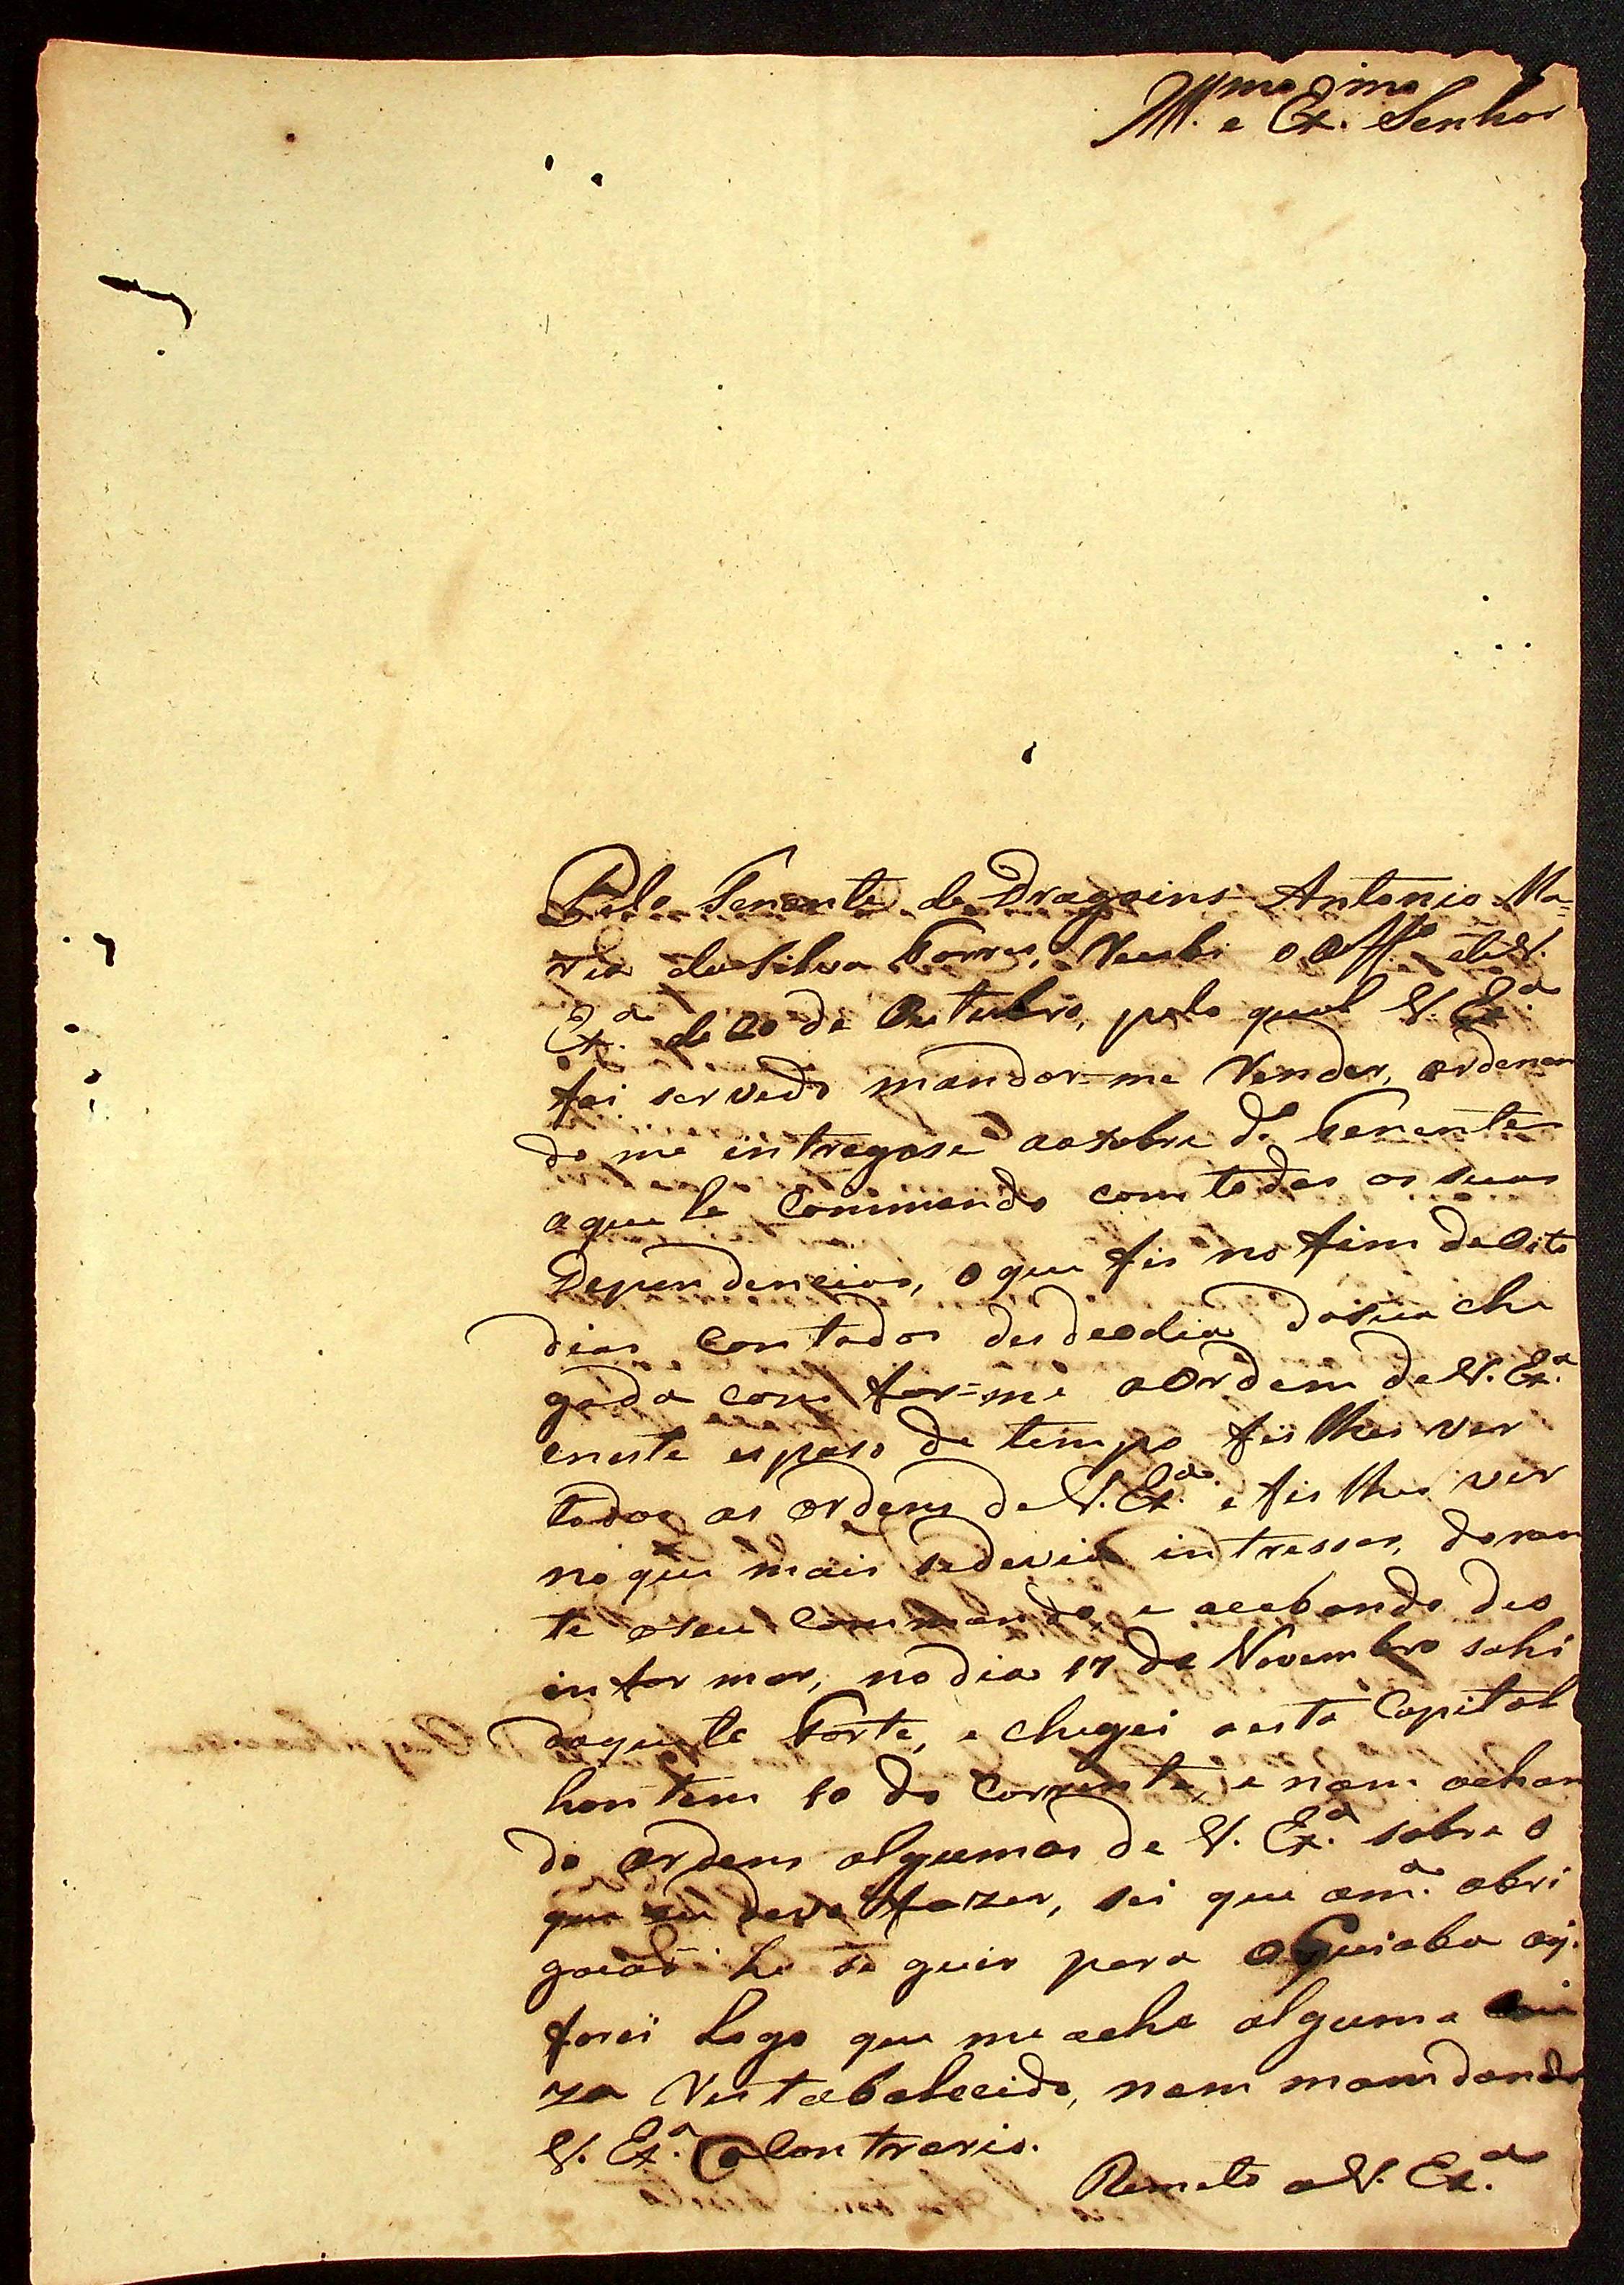 Ill.mo e Ex.mo Senhor
Pelo Tenente de Dragoins Antonio Ma=
ria da Silva Torres, Recebi o Off.o de V.
Ex.a de 20 de Outubro, pelo qual V. Ex.a
foi servido mandar=me Render, ordenan
do me intregase ao sobre d.o Tenente
aquele Commando com todas as suas
Dependencias, o que fis no fim de Oito
dias Contados desde o dia da sua che
gada com for=me a Ordem de V. Ex.a
e neste espaso de tempo fis lhes ver
todas as Ordens de V. Ex.a e fis lhes ver
no que mais se devia intressar, doran
te o seu Commando, e acabando de o
in for mar, no dia 17 de Novembro sahi
daquele Forte, e cheguei a esta Capital
hontem 10 do Corrente, e nam achan
do ordens algumas de V. Ex.a sobre o
que eu deva fazer, sei que a m.a obri
gacaõ he se guir para o Cuiaba o q.
farei Logo que me ache alguma Coi
za Restabalecido, nam mamdando
V. Ex.a o Contrario.
Remeto a V. Ex.a